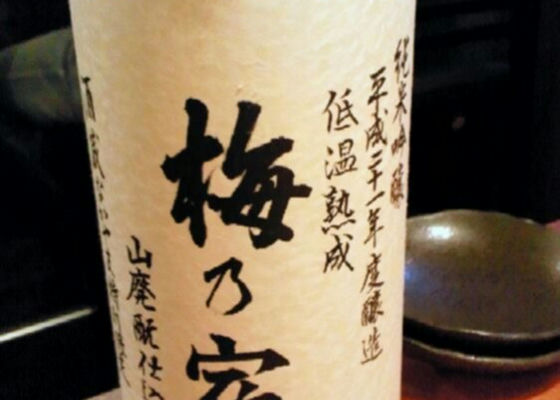 純米吟醸
平成二十一年度醸造
低温熟成
梅乃宿
山廃酛仕込